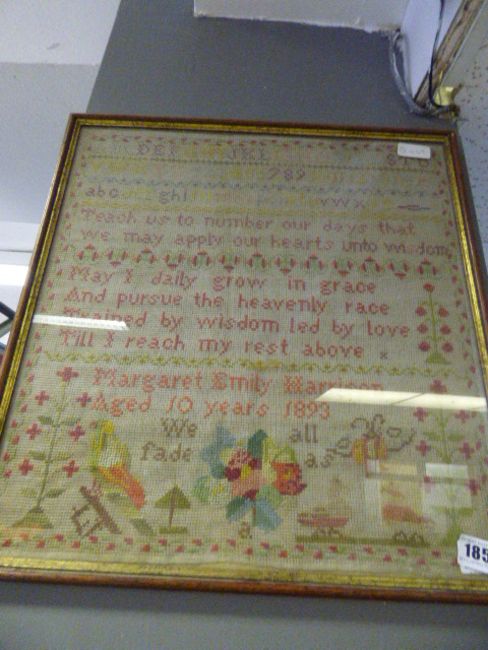 DEF JKL
789
abc ghi vwx
Teach us to number our days that
we may apply our hearts unto wisdom
May I daily grow in grace
And pursue the heavenly race
Trained by wisdom led by love
Till I reach my rest above x
Margaret Emily Harrison
Aged 10 years 1893
We all
fade as
a
185